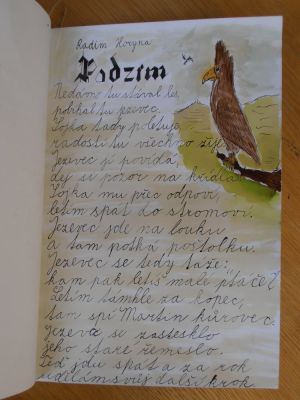 Radim Horyna
Podzim
Nedávno tu stával les,
tu jezevec.
Sojka tady poletuje,
radostí tu všechno žije.
Jezevec jí povídá,
dej si pozor na křídla.
Sojka mu přec odpoví,
letím spát do stromoví.
Jezevec jde na louku
a tam potká poštolku.
Jezevec se tedy táže:
kam pak letíš malé ptáče?
Letím tamhle za kopec,
tam spí Martin kůrovec.
Jezevci se zastesklo
jeho staré řemeslo.
Teď jdu spát a za rok
udělám svůj další krok.